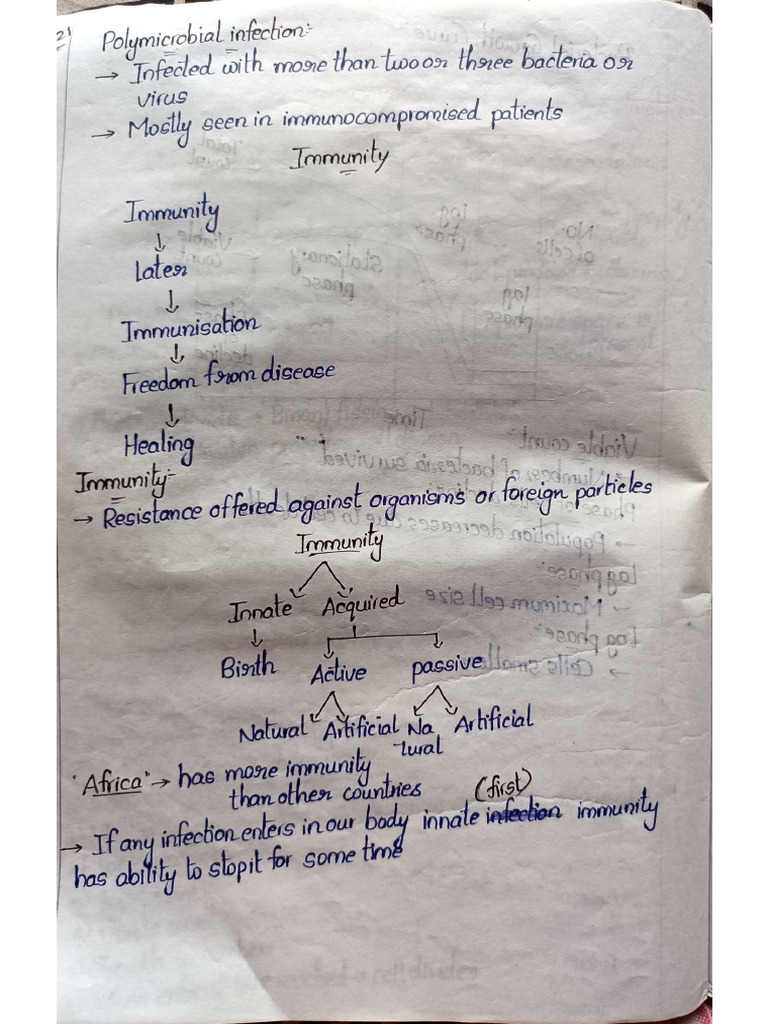 21
Polymicrobial infection:-
→ Infected with more than two or three bacteria or
virus
→ Mostly seen in immunocompromised patients
Immunity
Immunity
↓
Later
↓
Immunisation
↓
Freedom from disease
↓
Healing
Immunity:-
→ Resistance offered against organisms or foreign particles
Immunity
Innate Acquired
Birth Active passive
Natural Artificial Na Artificial
tural
"Africa" → has more immunity
than other countries
(first)
→ If any infection enters in our body innate infection immunity
has ability to stop it for some time